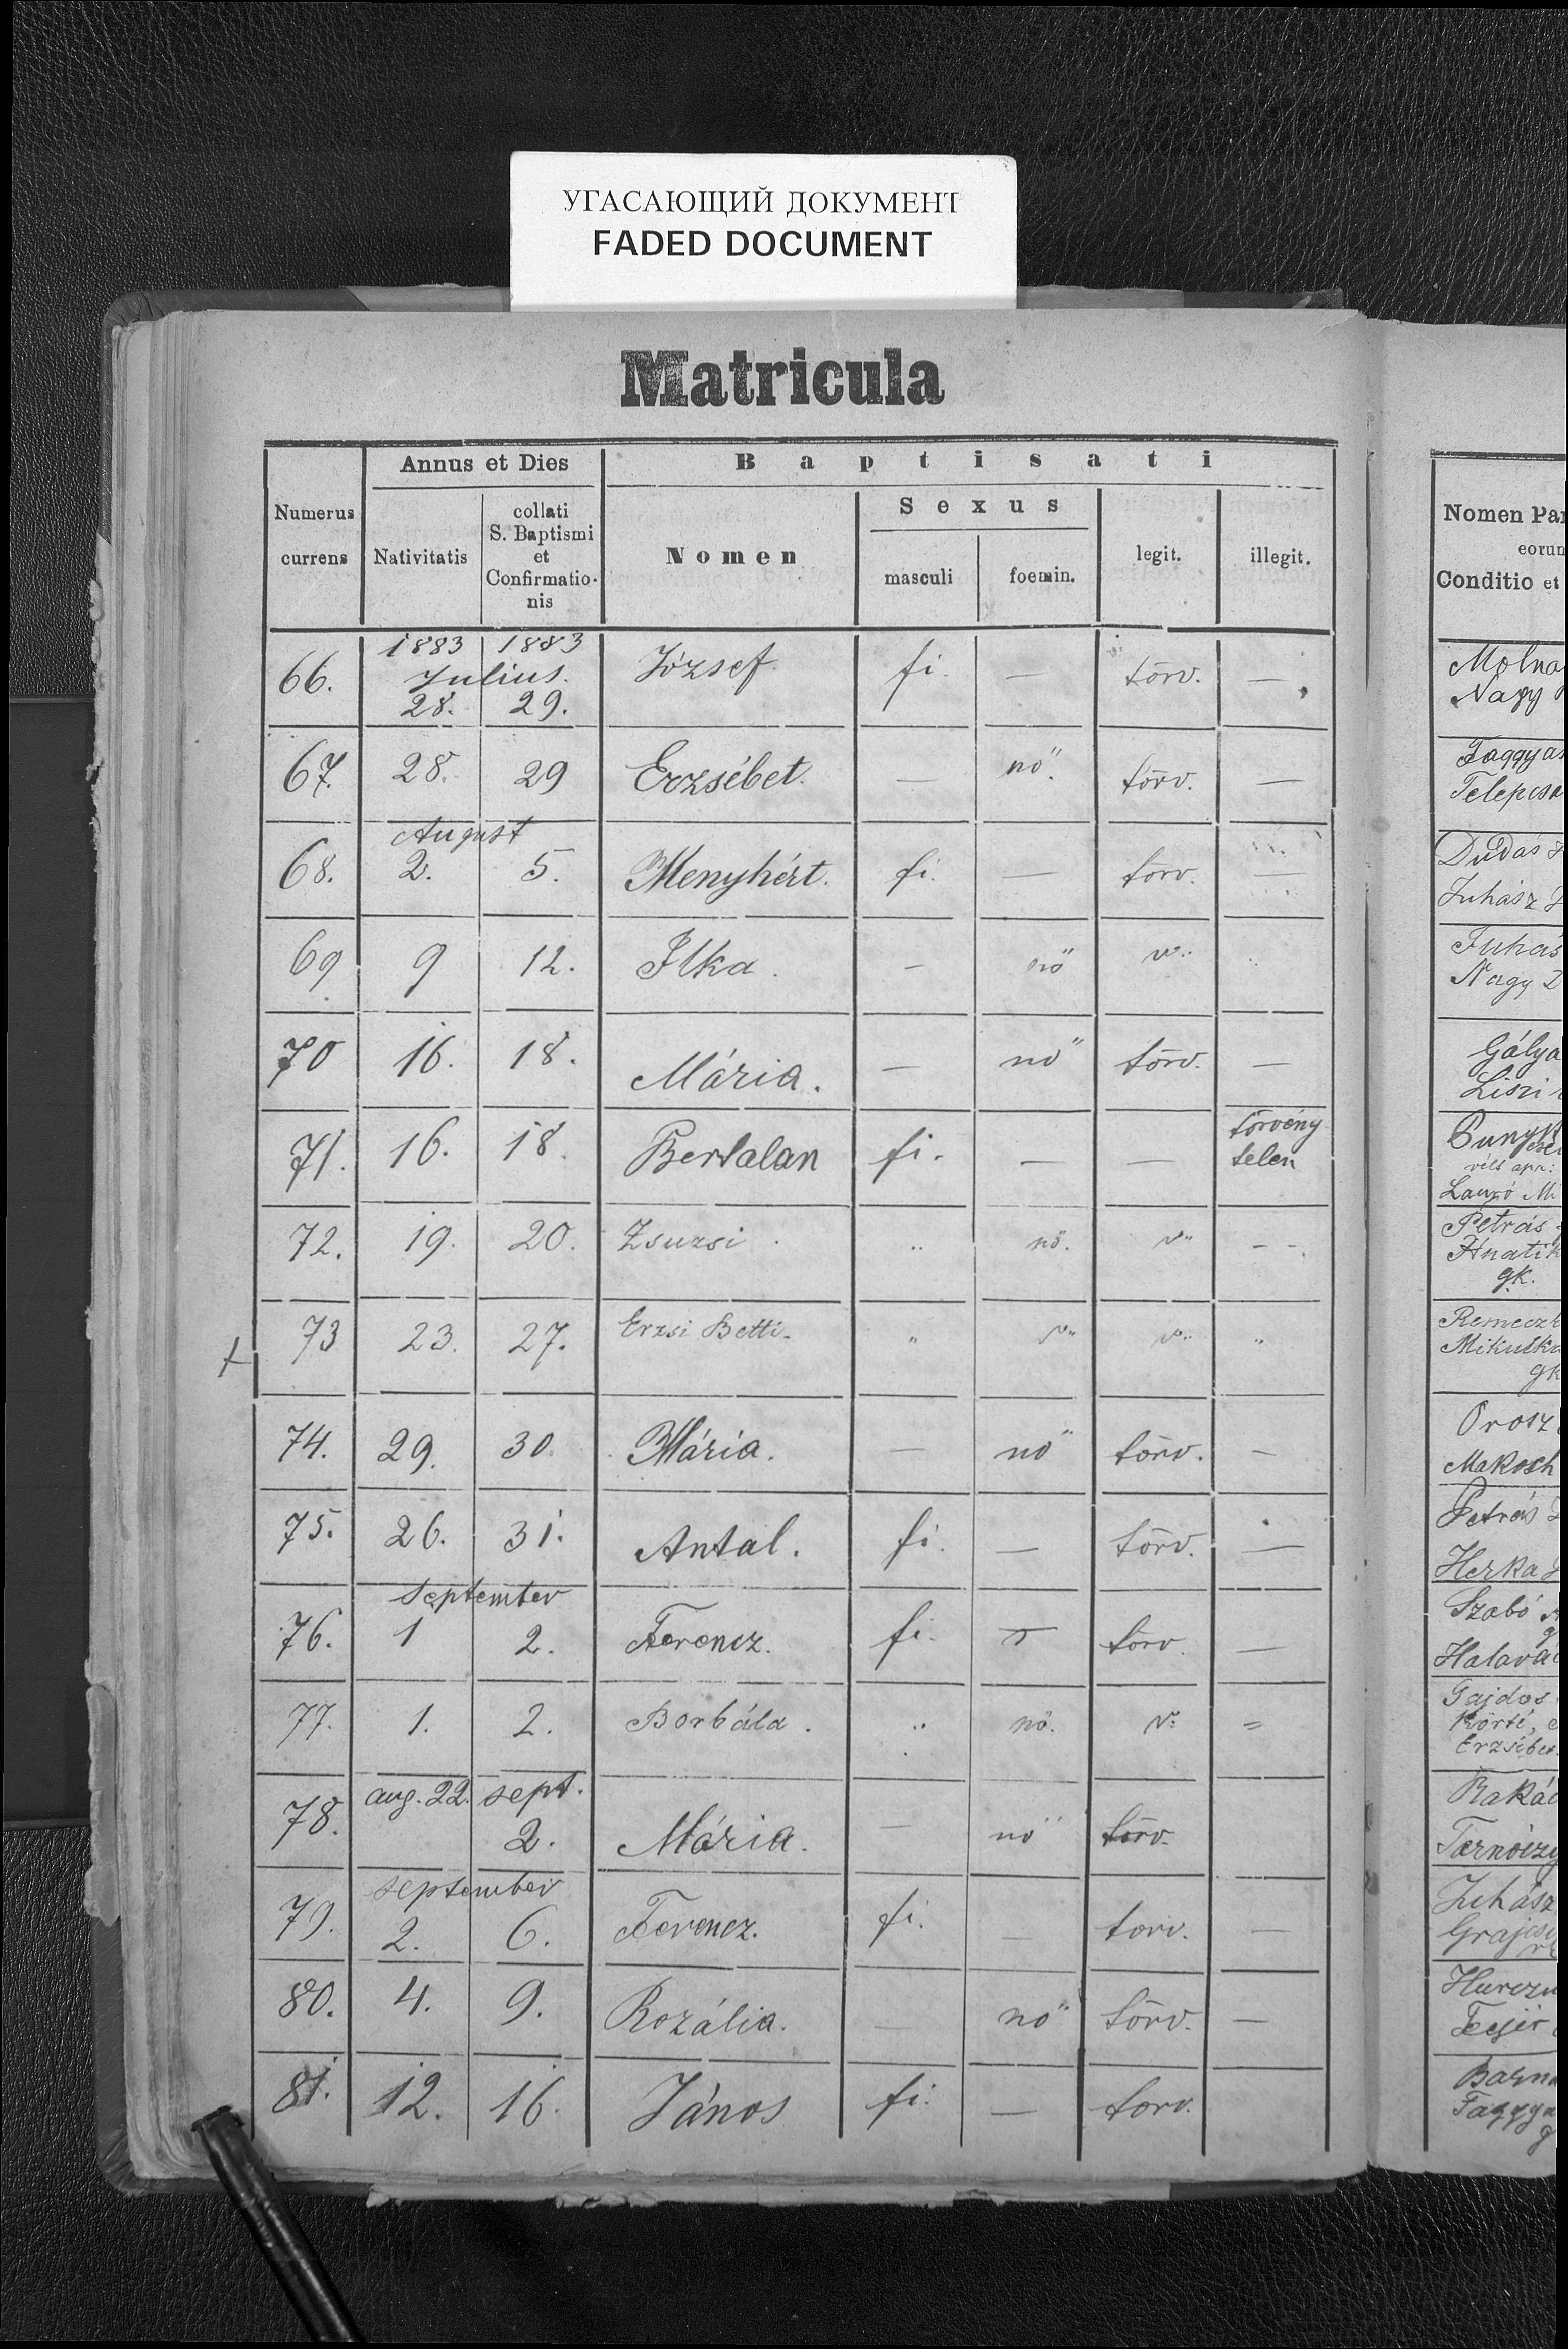 УГАСАЮЩИЙ ДОКУМЕНТ
FADED DOCUMENT
Matricula
Numerus currens
Annus et Dies
Nativitatis
collati S. Baptismi et Confirmationis
Baptisati
Nomen
Sexus
masculi
foemin.
legit.
illegit.
Nomen Par
eorun
Conditio et
1883 1883
Julius.
66. 28. 29. József. fi. — törv. —
67. 28. 29 Erzsébet. — nő. törv. —
August
68. 2. 5. Menyhért. fi. — törv. —
69 9 12. Ilka. — nő v. "
70 16. 18. Mária. — nő törv. —
71. 16. 18. Bertalan fi. — — törvény telen
72. 19. 20. Zsuzsi. " nő. v. " — -
73 23. 27. Erzsi Betti- " v. " v. " "
74. 29. 30. Mária. — nő törv. —
75. 26. 31. Antal. fi. — törv. —
September
76. 1 2. Ferencz. fi. — törv. —
77. 1. 2. Borbála. " nő. v. =
aug. 22. sept.
78. 2. Mária. — nő törv.
september
79. 2. 6. Ferencz. fi. — törv. —
80. 4. 9. Rozália. — nő törv. —
81. 12. 16. János fi. — törv.
Molna
Nagy
Faggyas
Telepcsa
Dudás
Juhász
Juhás
Nagy D
Gálya
Liszi
Lanzó Mi
Petrás
Hnatik
gk.
Remeczk
Mikulka
gk
Orosz
Makosch
Petrás
Herka
Szabó
Halava
Gajdos
Körti,
Erzsébet
Raká
Tarnóczy
Juhász
Grajcsi
Hurczu
Fejér
Barna
Faggya
g